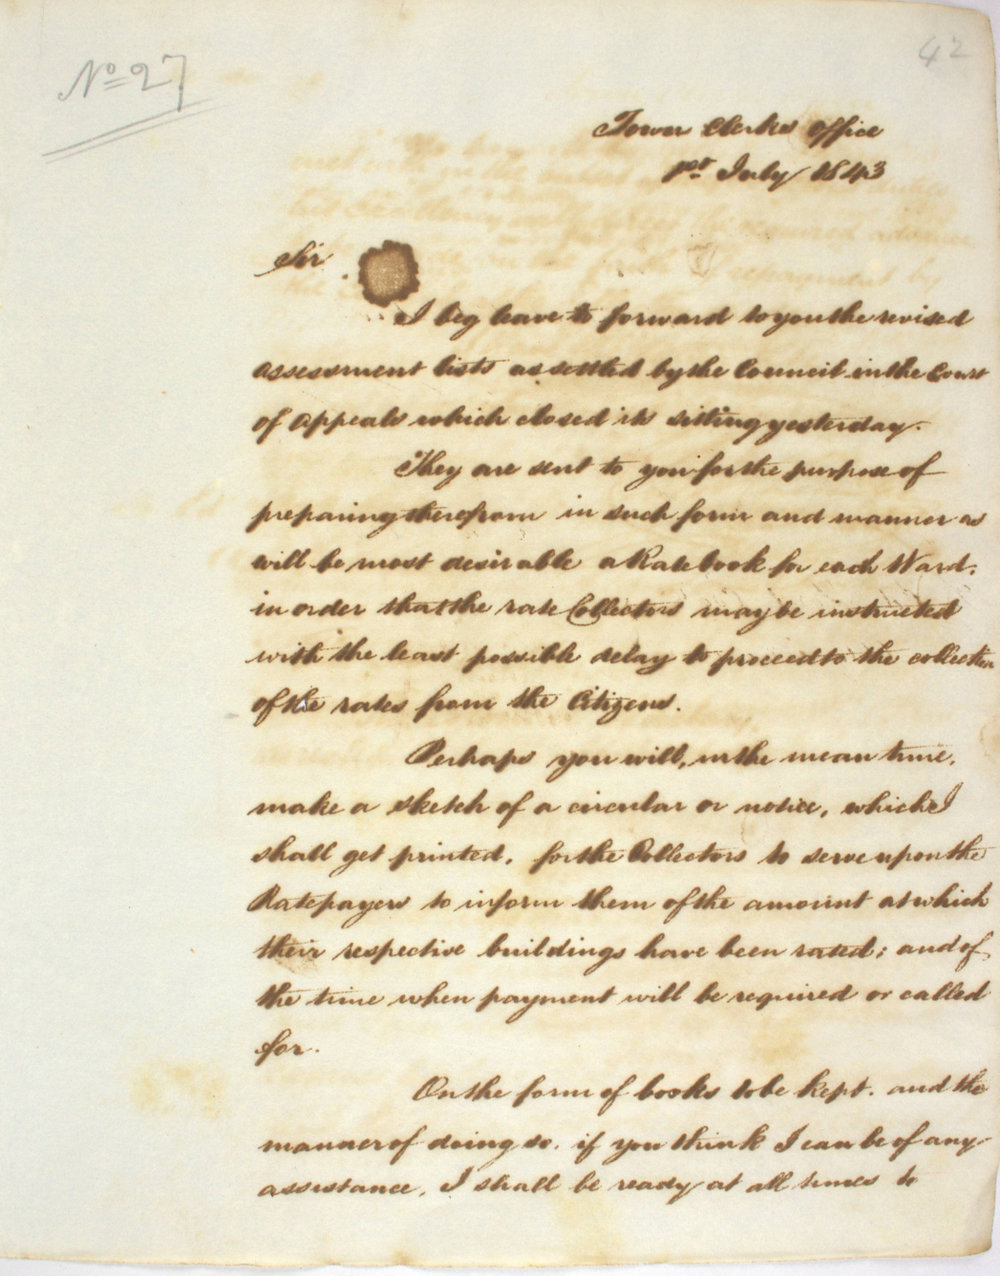 No 27
42
Town Clerks Office
1st July 1843
Sir
I beg leave to forward to you the revised
assessment lists as settled by the Council in the Court
of Appeals which closed its sitting yesterday.
They are sent to you for the purpose of
preparing therefrom in such form and manner as
will be most desirable a Rate book for each Ward,
in order that the rate Collectors may be instructed
with the least possible delay to proceed to the collection
of the rates from the Citizens.
Perhaps you will, in the mean time,
make a sketch of a circular or notice, which I
shall get printed, for the Collectors to serve upon the
Ratepayers to inform them of the amount at which
their respective buildings have been rated; and of
the time when payment will be required or called
for.
On the form of books to be kept, and the
manner of doing so, if you think I can be of any
assistance, I shall be ready at all times to